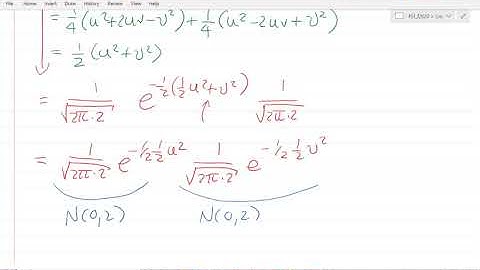 File Home Insert Draw History Review View Help
= 1/4 (u²+2uv-v²) + 1/4 (u²-2uv+v²)
= 1/2 (u²+v²)
= 1/√(2π·2) e^(-1/2(1/2u²+v²)) 1/√(2π·2)
= 1/√(2π·2) e^(-1/2 1/2 u²) 1/√(2π·2) e^(-1/2 1/2 v²)
N(0,2) N(0,2)